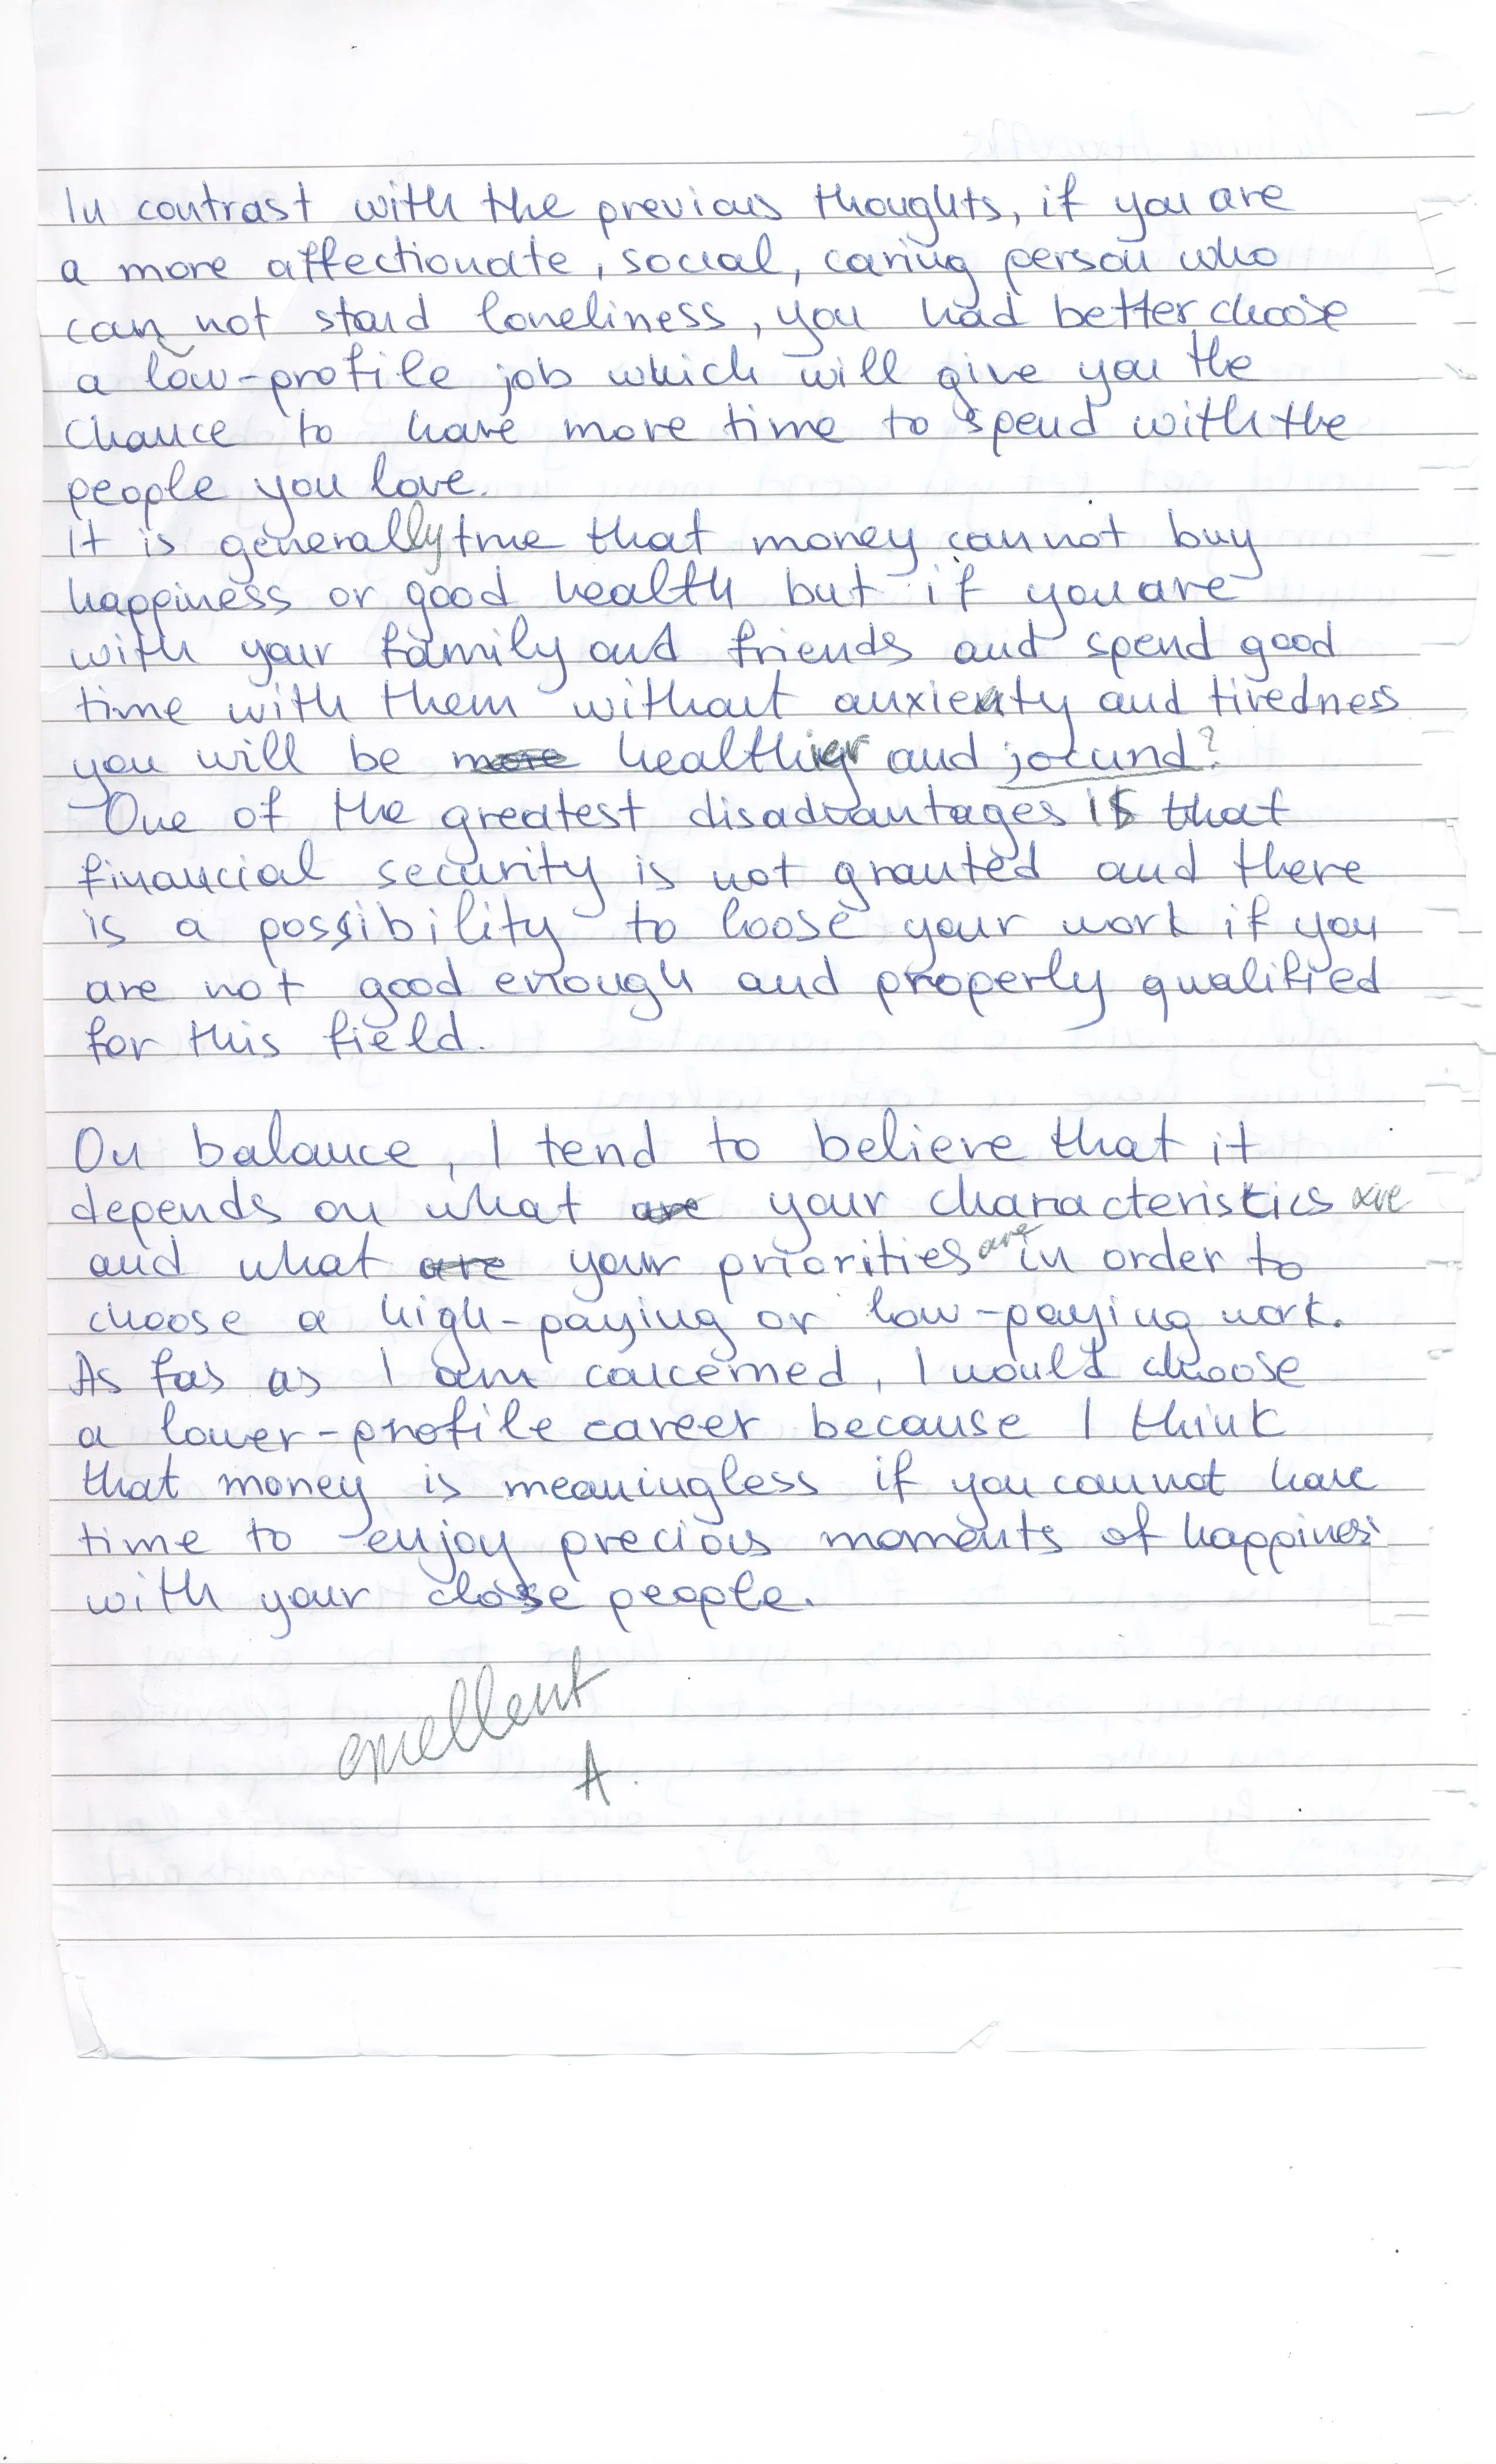 In contrast with the previous thoughts, if you are
a more affectionate, social, caring person who
can not stand loneliness, you had better choose
a low-profile job which will give you the
chance to have more time to spend with the
people you love.
It is generally true that money cannot buy
happiness or good health but if you are
with your family and friends and spend good
time with them without anxienty and tiredness
you will be more healthier and jocund?
One of the greatest disadvantages is that
financial security is not granted and there
is a possibility to loose your work if you
are not good enough and properly qualified
for this field.
On balance, I tend to believe that it
depends on what are your characteristics are
and what are your priorities are in order to
choose a high-paying or low-paying work.
As fas as I am concerned, I would choose
a lower-profile career because I think
that money is meaningless if you cannot have
time to enjoy precious moments of happiness
with your close people.
excellent
A.